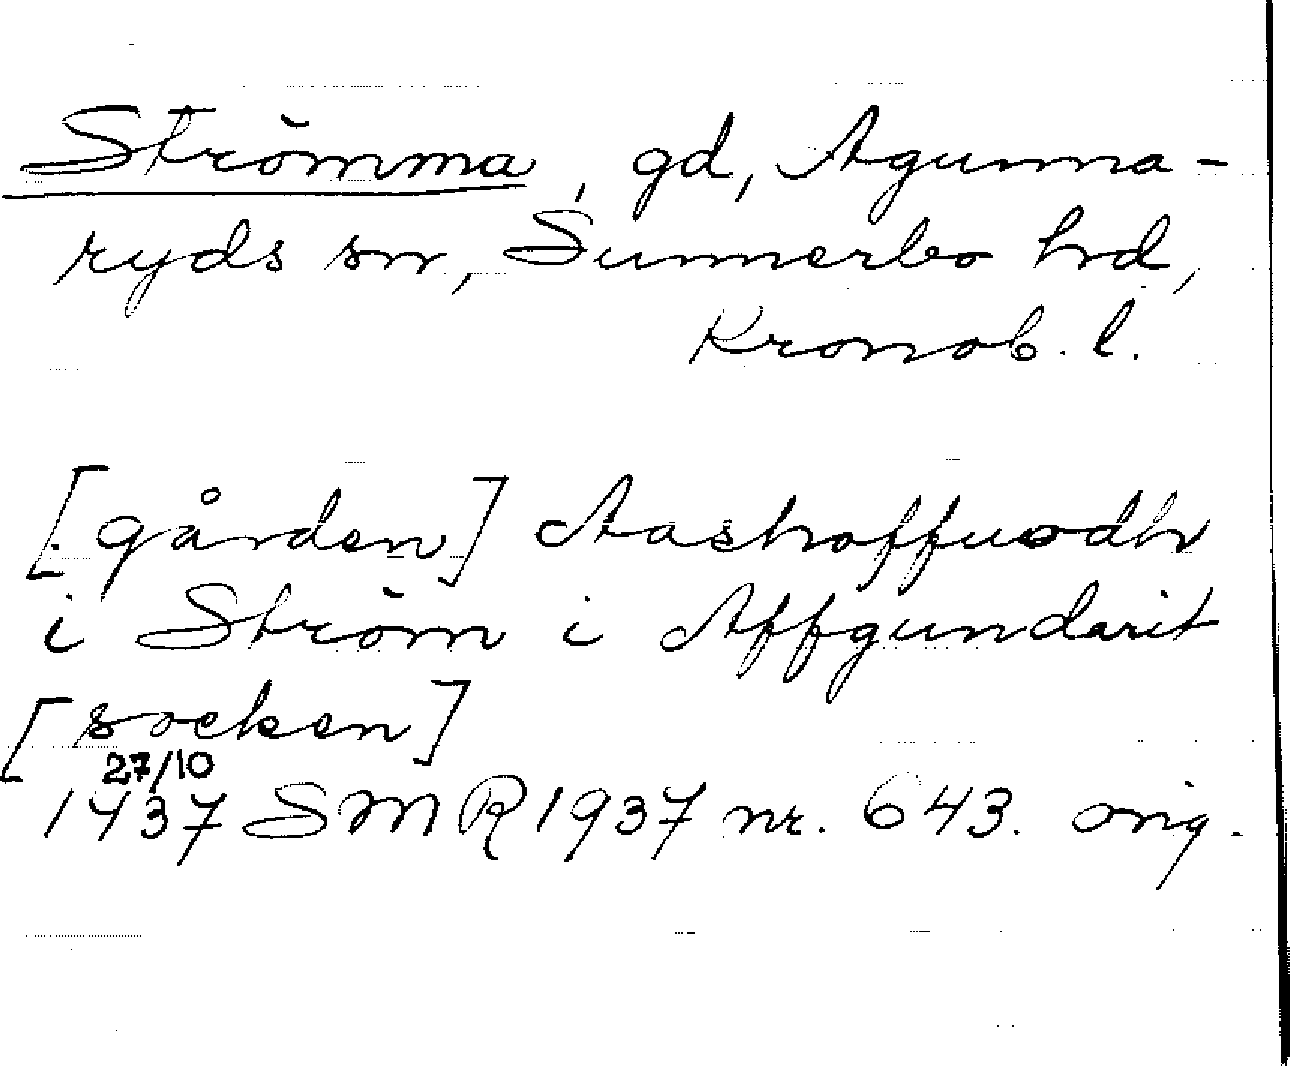 Strömma, gd, Agunna-
ryds sn, Sunnerbo hd,
Kronob. l.
[gården] Aashoffuodh
i Ström i Affgundarit
[socken]
27/10
1437 SMR 1937 nr. 643. orig.